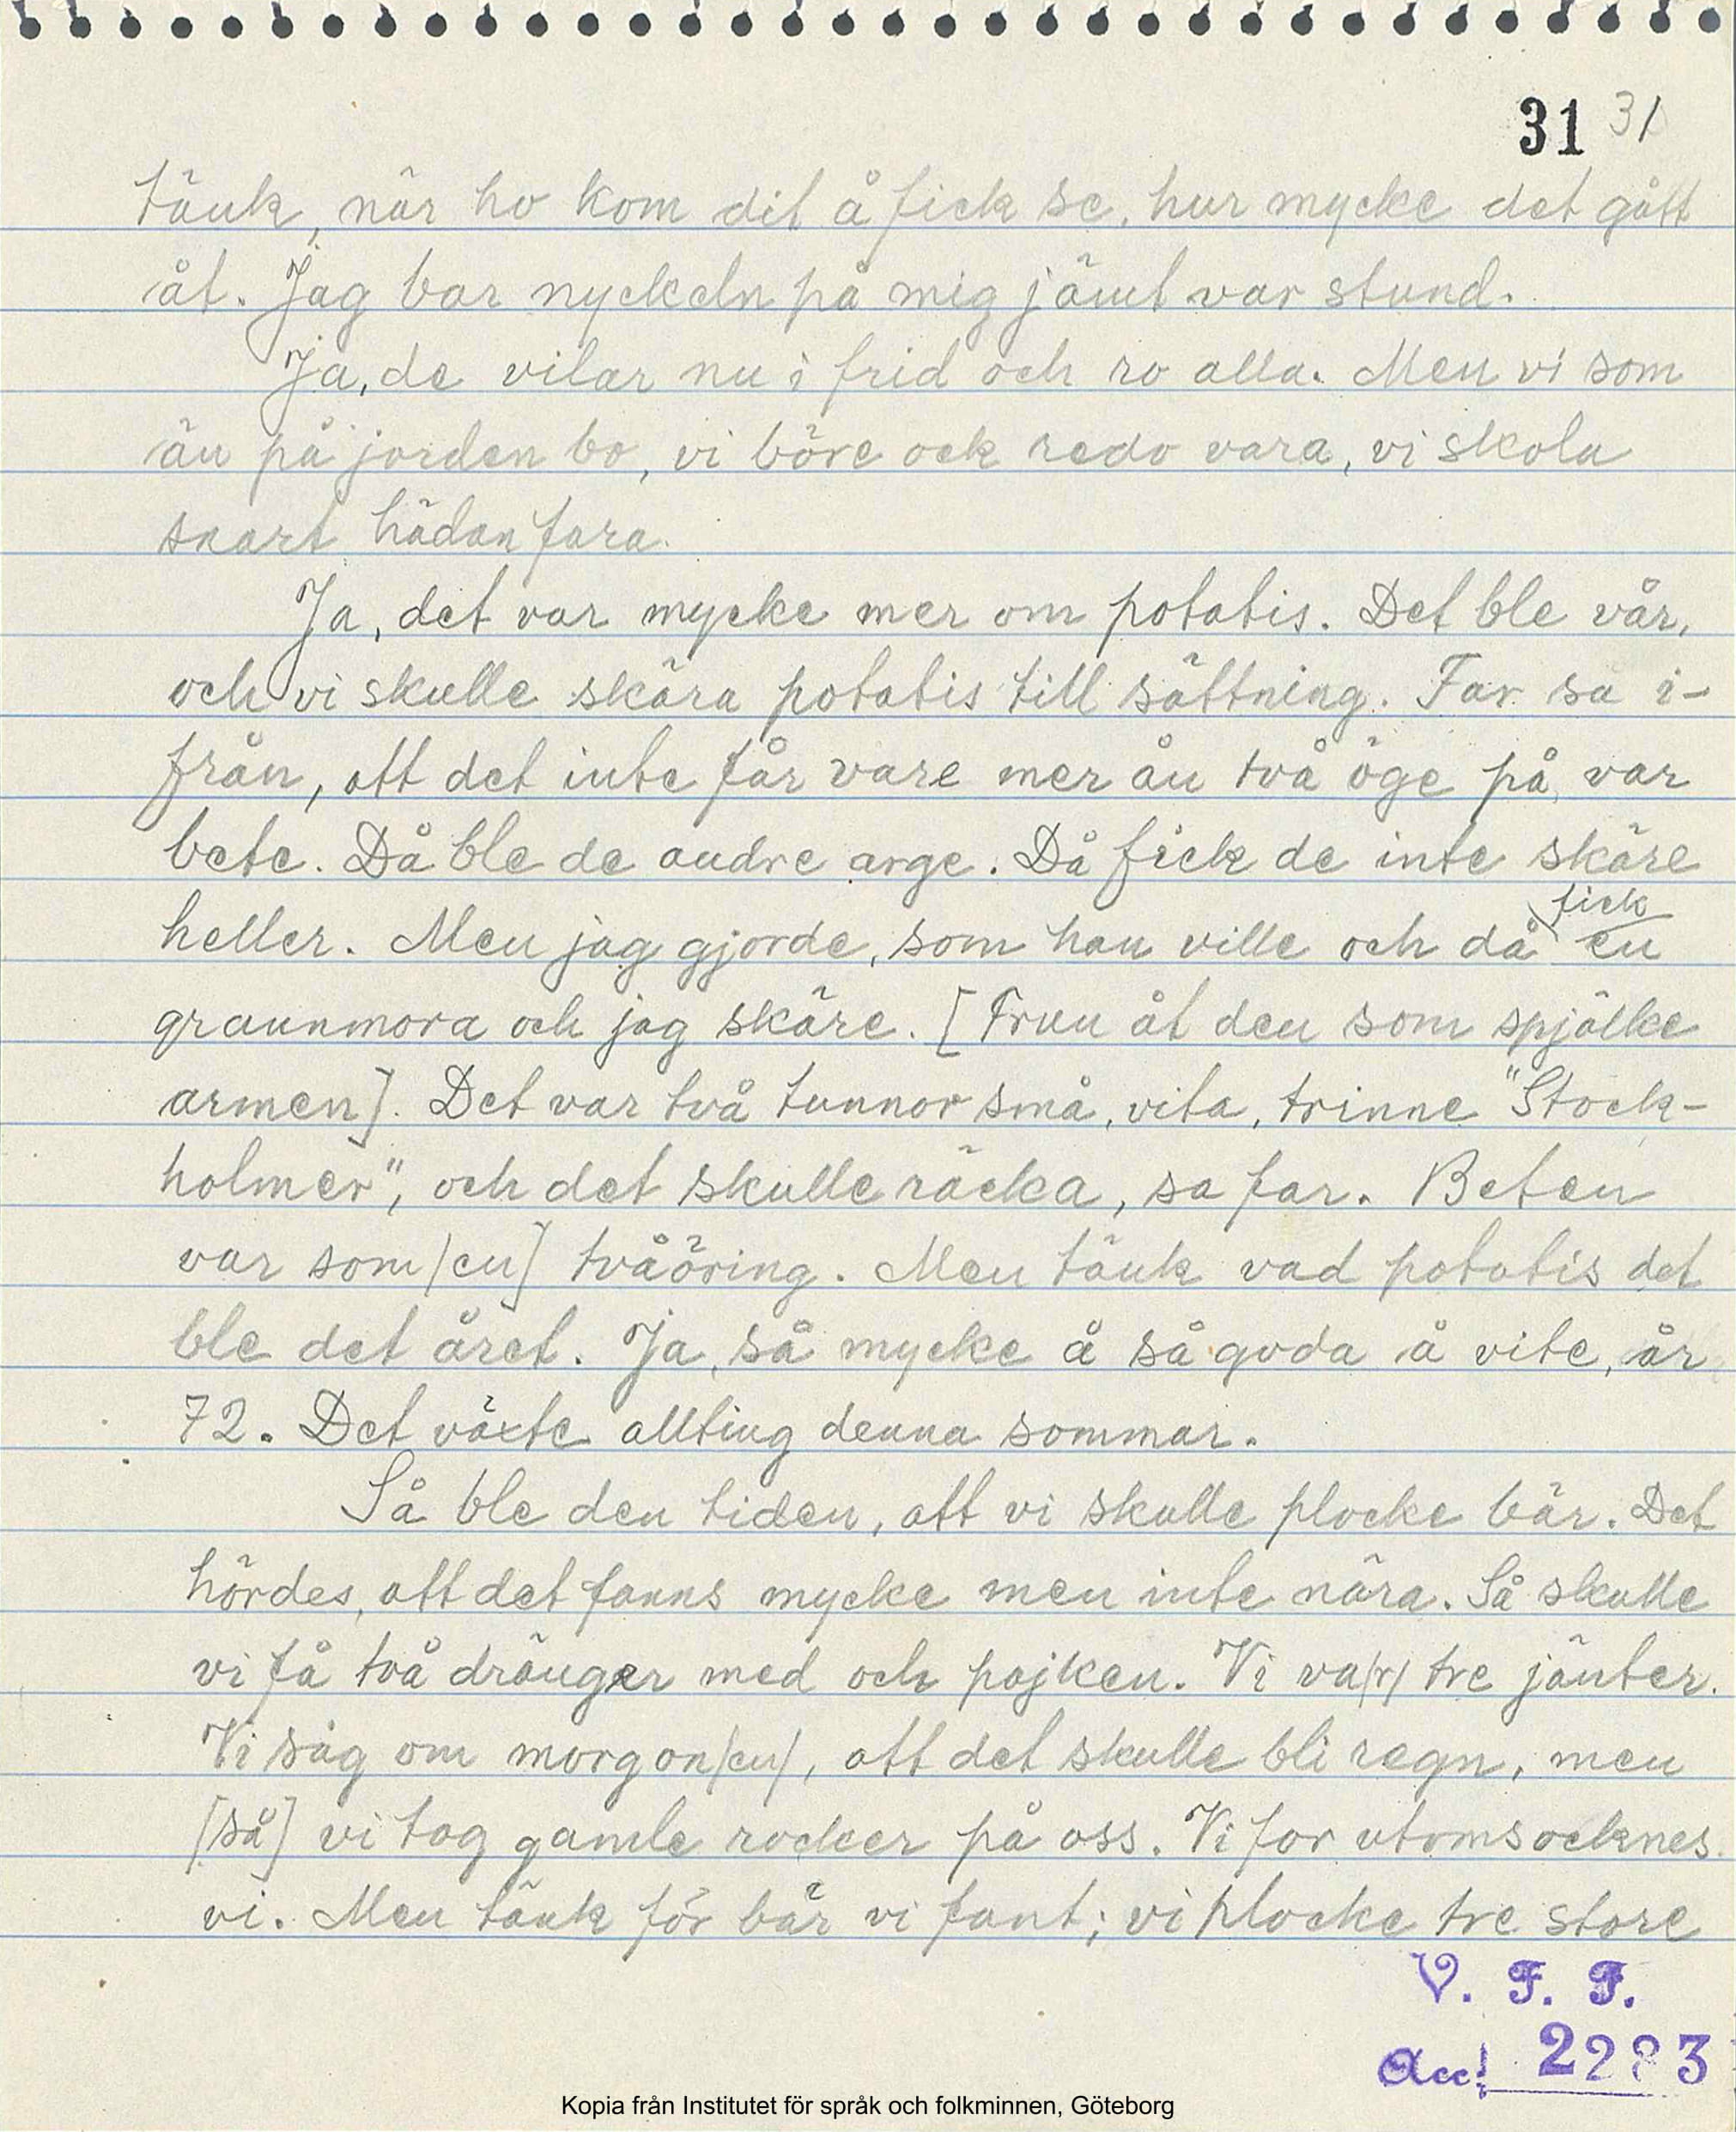 31 31
tänk, när ho kom dit å fick se, hur mycke det gått
åt. Jag bar nyckeln på mig jämt var stund.
Ja, de vilar nu i frid och ro alla. Men vi som
än på jorden bo, vi böre ock redo vara, vi skola
snart hädan fara.
Ja, det var mycke mer om potatis. Det ble vår,
och vi skulle skära potatis till sättning. Far sa i-
från, att det inte får vare mer än två öge på var
bete. Då ble de andre arge. Då fick de inte skäre
heller. Men jag gjorde, som han ville och då fick en
grannmora och jag skäre. [Frun åt den som spjälke
armen]. Det var två tunnor små, vita, trinne "Stock-
holmer", och det skulle räcka, sa far. Beten
var som /en] tvåöring. Men tänk vad potatis det
ble det året. Ja, så mycke å så goda å vite, år
72. Det växte allting denna sommar.
Så ble den tiden, att vi skulle plocke bär. Det
hördes, att det fanns mycke men inte nära. Så skulle
vi få två dränger med och pojken. Vi va/r/ tre jänter.
Vi såg om morgon/en/, att det skulle bli regn, men
[så] vi tog gamle rocker på oss. Vi for utomsocknes
vi. Men tänk för bär vi fant; vi plocke tre store
V. F. F.
Acc. 2283
Kopia från Institutet för språk och folkminnen, Göteborg